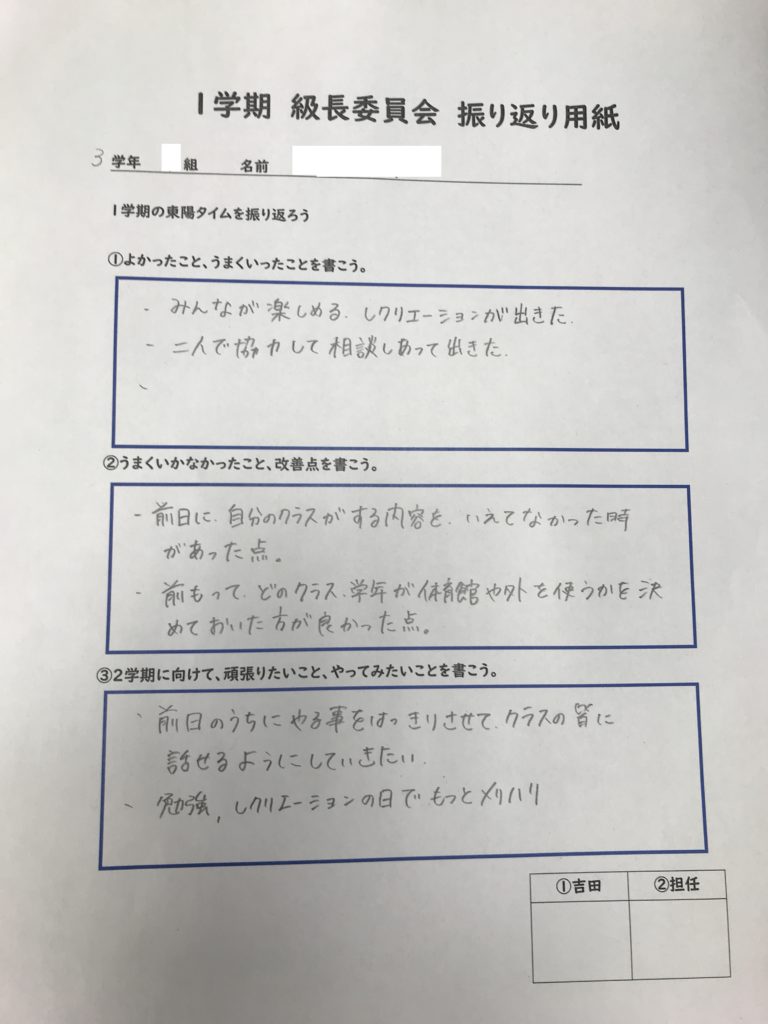 1学期 級長委員会 振り返り用紙
3学年 組 名前
1学期の東陽タイムを振り返ろう
①よかったこと、うまくいったことを書こう。
- みんなが楽しめる、レクリエーションが出きた.
- 二人で協力して相談しあって出きた.
②うまくいかなかったこと、改善点を書こう。
- 前日に、自分のクラスがする内容を、いえてなかった時
があった点。
- 前もって、どのクラス、学年が体育館や外を使うかを決
めておいた方が良かった点。
③2学期に向けて、頑張りたいこと、やってみたいことを書こう。
、前日のうちにやる事をはっきりさせて、クラスの皆に
話せるようにしていきたい.
、勉強,レクリエーションの日でもっとメリハリ
①吉田 ②担任